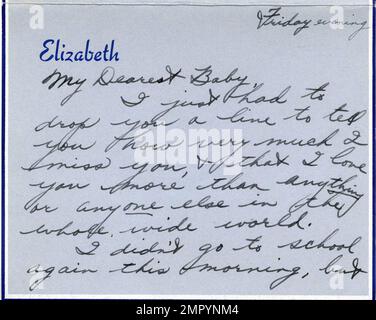 Friday evening
Elizabeth
My Dearest Baby,
I just had to
drop you a line to tell
you how very much I
miss you, & that I love
you more than anything
or anyone else in the
whole, wide world.
I didn't go to school
again this morning, but
alamy
Image ID: 2MPYNM4
www.alamy.com